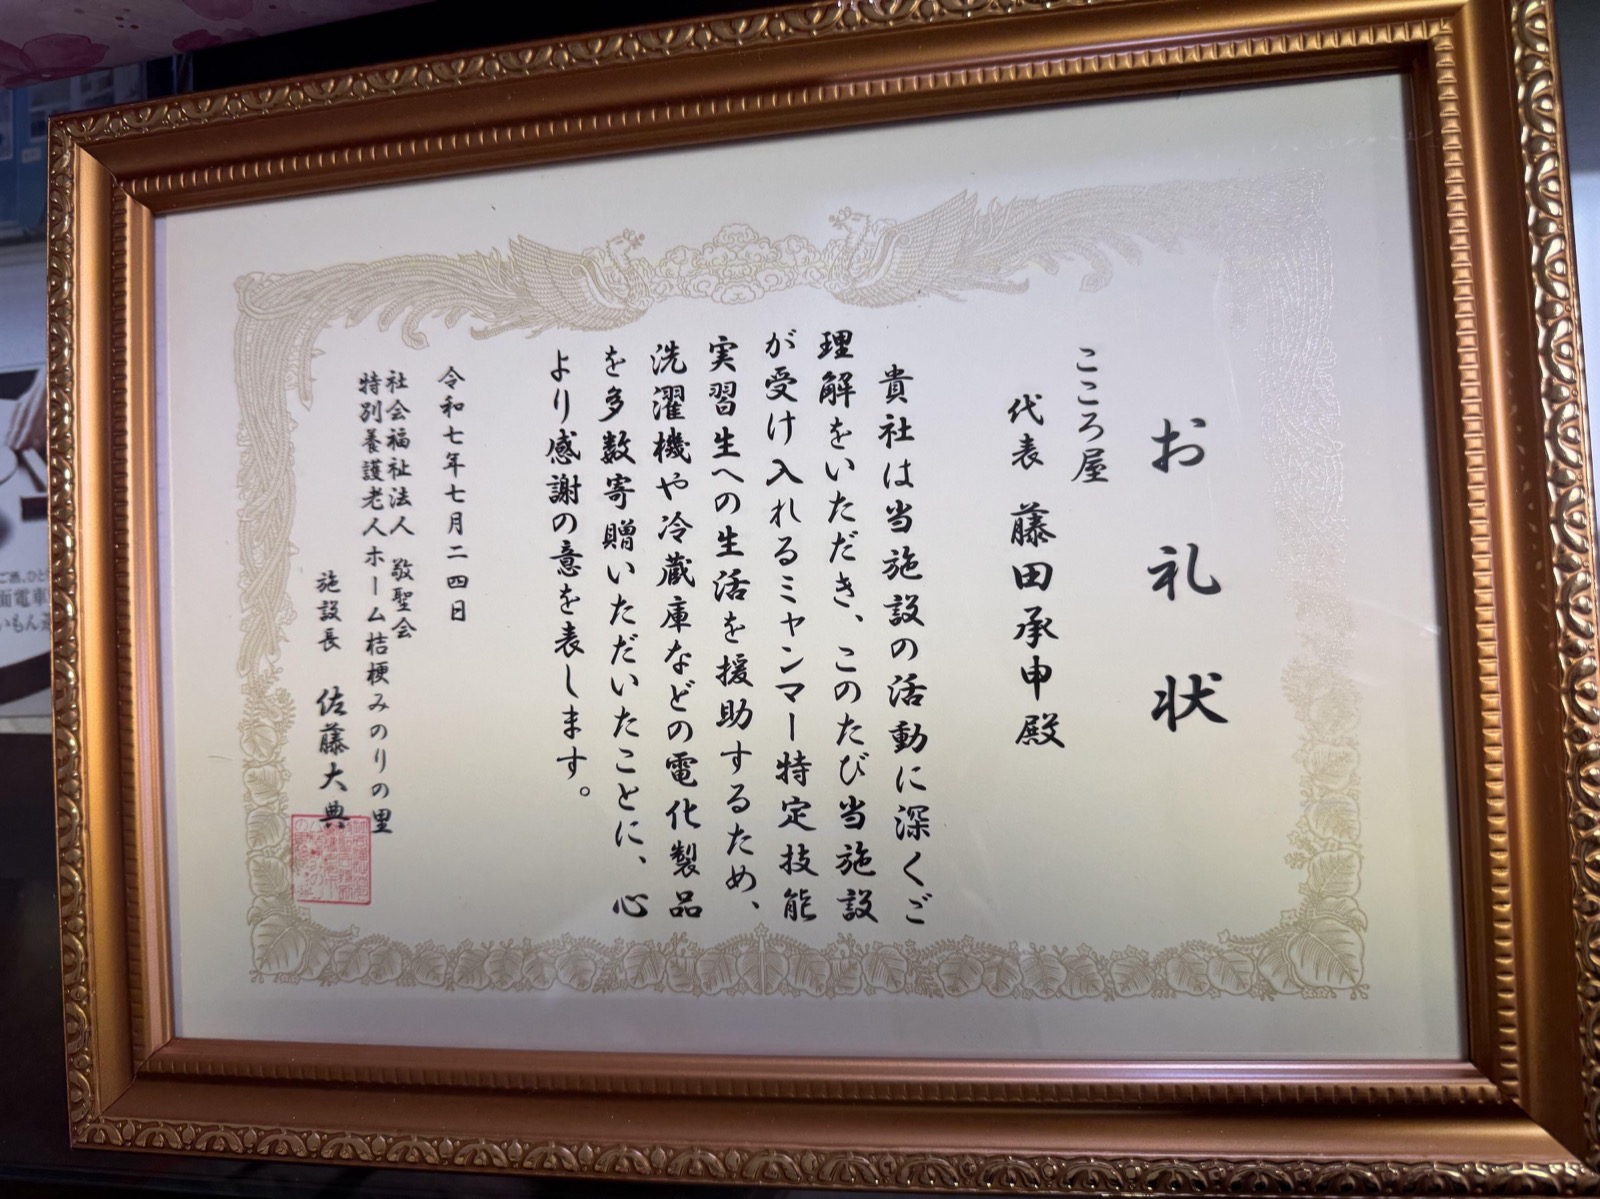 お礼状
こころ屋
代表 藤田承申殿
貴社は当施設の活動に深くご
理解をいただき、このたび当施設
が受け入れるミャンマー特定技能
実習生への生活を援助するため、
洗濯機や冷蔵庫などの電化製品
を多数寄贈いただいたことに、心
より感謝の意を表します。
令和七年七月二四日
社会福祉法人 敬聖会
特別養護老人ホーム桔梗みのりの里
施設長 佐藤大典